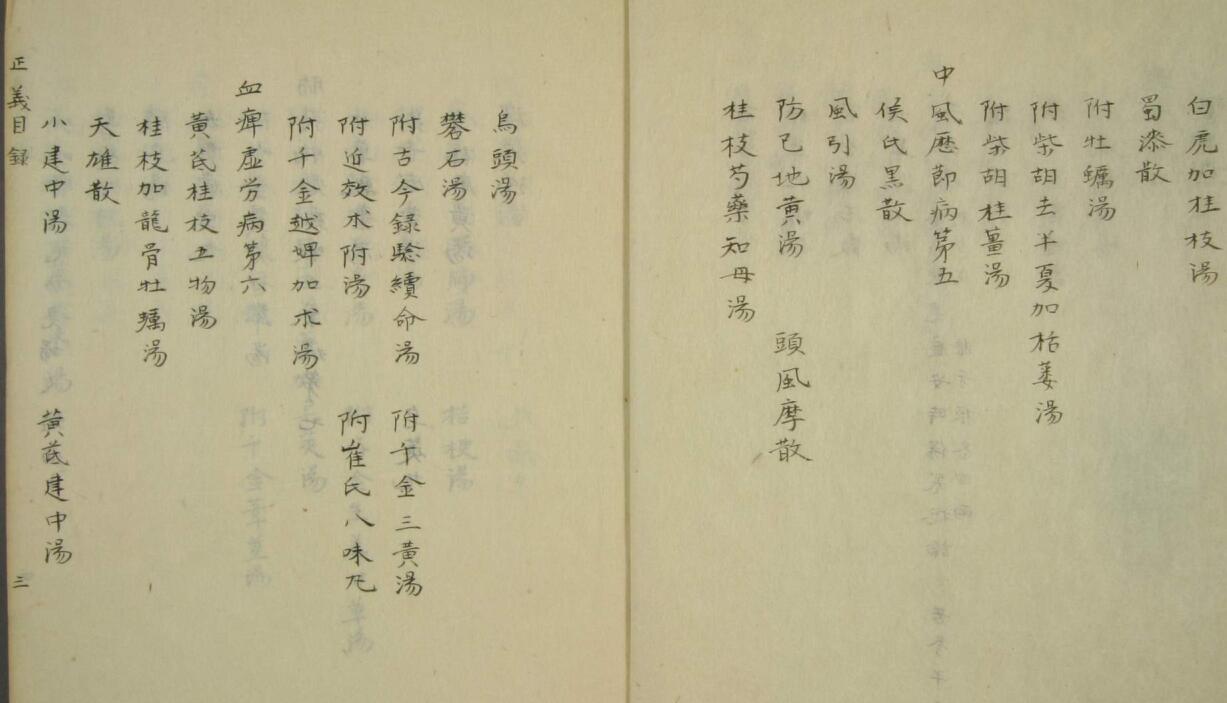 白虎加桂枝湯
蜀漆散
附牡蠣湯
附柴胡去半夏加栝蔞湯
附柴胡桂薑湯
中風歷節病第五
侯氏黒散
風引湯
防已地黄湯　頭風摩散
桂枝芍藥知母湯
烏頭湯
礬石湯
附古今錄驗續命湯　附千金三黄湯
附近效朮附湯　附崔氏八味丸
附千金越婢加朮湯
血痺虚労病第六
黄芪桂枝五物湯
桂枝加龍骨牡蠣湯
天雄散
小建中湯　黄芪建中湯
正義目録　三